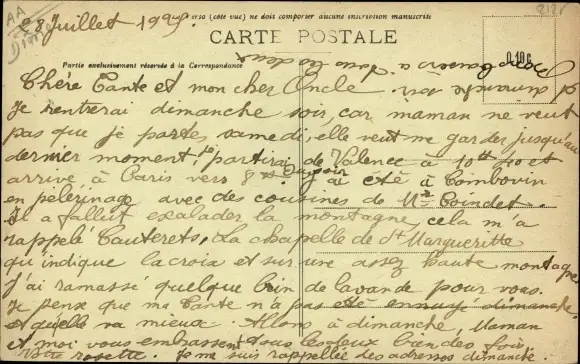 AA
Dim
28 Juillet 19
verso (côté vue) ne doit comporter aucune inscription manuscrite
CARTE POSTALE
Partie exclusivement réservée à la Correspondance
0,10c
Chère Tante et mon cher Oncle.
Je rentrerai dimanche soir, car maman ne veut
pas que je partes samedi, elle veut me garder jusqu'au
dernier moment. Je partirai de Valence à 10H40 et
arrive à Paris vers 8H du soir. J'ai été à Combovin
en pèlerinage avec des cousines de Mme Coindet.
Il a fallut escalader la montagne, cela m'a
rappelé Cauterets, La chapelle de St Margueritte
qu'indique la croix et sur une assez haute montagne
J'ai ramassé quelque brin de lavande pour vous.
Je pense que ma Tante n'a pas été ennuyé dimanche
et qu'elle va mieux. Allons à dimanche, Maman
et moi vous embrassent tous les deux bien des fois
Votre rosette. Je me suis rappellée des adresses dimanche